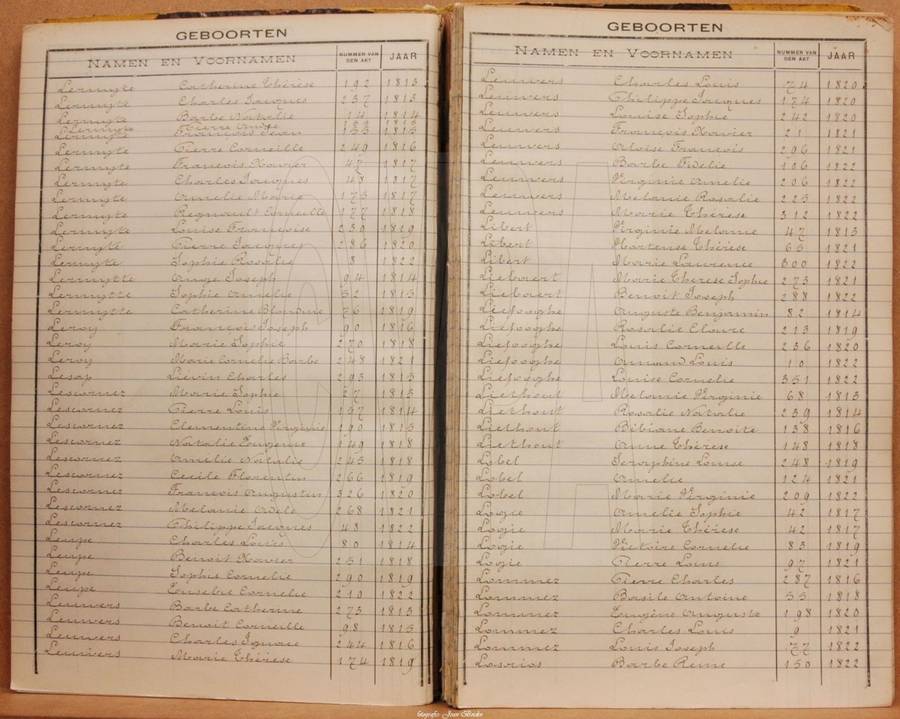 GEBOORTEN
NAMEN EN VOORNAMEN NUMMER VAN DEN AKT JAAR
Lermyte Catherine Thérèse 192 1813
Lermyte Charles Jacques 237 1813
Lermyte Barbe Natalie 14 1814
Lermyte Pierre 1815
Lermyte François Jean 133 1815
Lermyte Pierre Corneille 249 1816
Lermyte François Xavier 47 1817
Lermyte Charles Jacques 48 1817
Lermyte Amelie Marie 173 1817
Lermyte Regnault Corneille 177 1818
Lermyte Louise Françoise 239 1819
Lermyte Pierre Jacques 286 1820
Lermyte Sophie Rosalie 8 1822
Lermytte Ange Joseph 94 1814
Lermytte Sophie Amelie 32 1815
Lermytte Catherine Blandine 76 1819
Leroy François Joseph 90 1816
Leroy Marie Sophie 270 1818
Leroy Marie Cornelie Barbe 248 1821
Lesap Liévin Charles 293 1813
Lescornez Marie Sophie 27 1813
Lescornez Pierre Louis 137 1814
Lescornez Clementine Virginie 190 1815
Lescornez Natalie Eugenie 149 1818
Lescornez Amelie Natalie 243 1818
Lescornez Cecile Florentin 266 1819
Lescornez François Augustin 326 1820
Lescornez Melanie Adele 268 1821
Lescornez Philippe Jacques 48 1822
Leupe Charles Louis 80 1814
Leupe Benoit Xavier 231 1818
Leupe Sophie Cornelie 290 1819
Leupe Eusebie Cornelie 219 1822
Leuwers Barbe Catherine 273 1813
Leuwers Benoit Corneille 98 1815
Leuwers Charles Ignace 244 1816
Leuwers Marie Thérèse 174 1819
GEBOORTEN
NAMEN EN VOORNAMEN NUMMER VAN DEN AKT JAAR
Leuwers Charles Louis 74 1820
Leuwers Philippe Jacques 174 1820
Leuwers Louise Sophie 242 1820
Leuwers François Xavier 21 1821
Leuwers Aloise François 296 1821
Leuwers Barbe Fidelie 106 1822
Leuwers Virginie Amelie 206 1822
Leuwers Melanie Rosalie 223 1822
Leuwers Marie Thérèse 312 1822
Libert Virginie Melanie 47 1813
Libert Hortense Thérèse 63 1821
Libert Marie Laurence 300 1822
Liebaert Marie Thérèse Sophie 273 1821
Liebaert Benoit Joseph 288 1822
Liefooghe Auguste Benjamin 82 1814
Liefooghe Rosalie Claire 213 1819
Liefooghe Louis Corneille 236 1820
Liefooghe Armand Louis 10 1822
Liefooghe Louise Cornelie 331 1822
Liethout Melanie Virginie 68 1813
Liethout Rosalie Natalie 239 1814
Liethout Bibiane Benoite 138 1816
Liethout Anne Thérèse 148 1818
Lobel Seraphine Louise 248 1819
Lobel Amelie 124 1821
Lobel Marie Virginie 209 1822
Logie Amelie Sophie 42 1817
Logie Marie Thérèse 42 1817
Logie Victoire Cornelie 83 1819
Logie Pierre Louis 97 1821
Lommez Pierre Charles 287 1816
Lommez Basile Antoine 33 1818
Lommez Eugène Auguste 198 1820
Lommez Charles Louis 9 1821
Lommez Louis Joseph 77 1822
Losrios Barbe Reine 150 1822